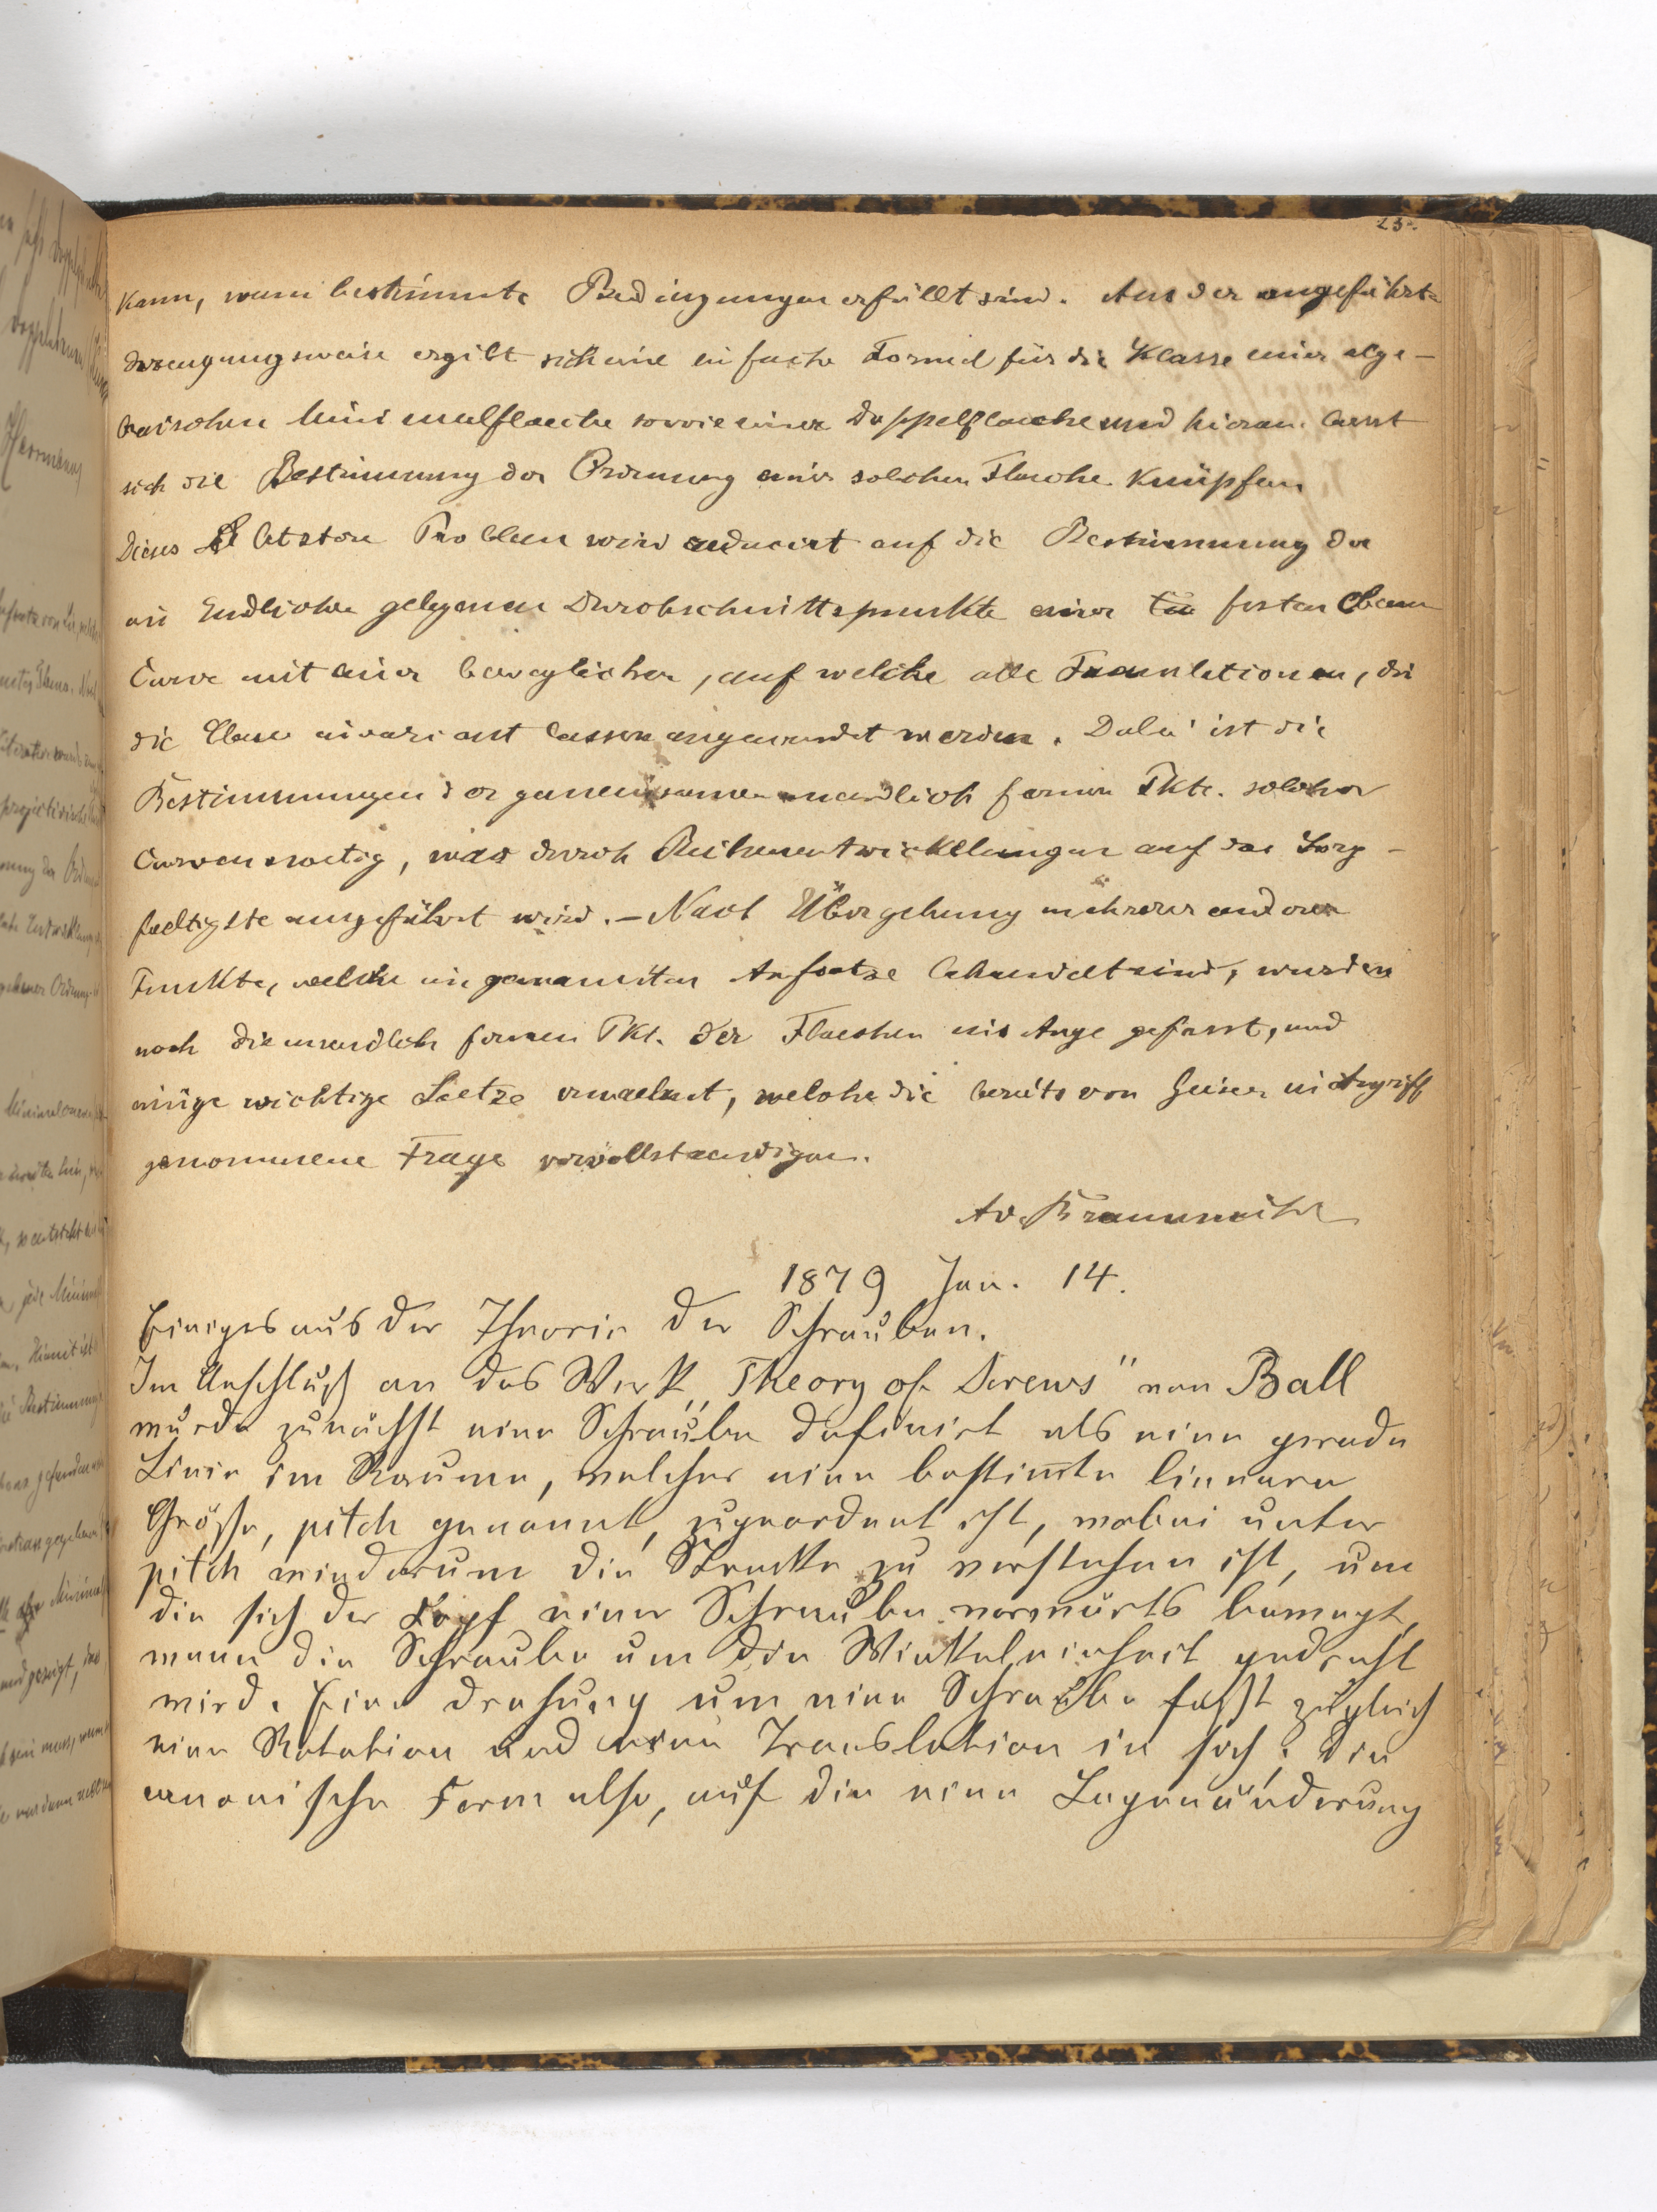 23.
kann, wenn bestimmte Bedingungen erfüllt sind. Aus der angeführten
Erzeugungsweise ergibt sich eine einfache Formel für die Klasse einer alge-
braischen Minimalflaeche sowie einer Doppelflaeche und hieran laesst
sich die Bestimmung der Ordnung einer solchen Flaeche knüpfen
Dieses letztere Problem wird reducirt auf die Bestimmung der
im Endlichen gelegenen Durchschnittspunkte einer festen ebenen
Curve mit einer beweglichen, auf welche alle Translationen, die
die Ebene invariant lassen angewendet werden. Dabei ist die
Bestimmungen der gemeinsamen unendlich fernen Pkte. solcher
Curven noetig, was durch Reihenentwickelungen auf das Sorg-
faeltigste ausgeführt wird. – Nach Übergehung mehrerer anderer
Punkte, welche im genannten Aufsatze behandelt sind, wurden
noch die unendlich fernen Pkt. der Flaechen ins Auge gefasst, und
einige wichtige Saetze erwaehnt, welche die bereits von Geiser in Angriff
genommene Frage vervollstaendigen.
A v. Braunmühl
1879 Jan. 14.
Einiges aus der Theorie der Schrauben.
Im Anschluß an das Werk „Theory of Screws" von Ball
wurde zunächst eine Schraube definirt als eine gerade
Linie im Raume, welcher eine bestimmte lineare
Größe, pitch genannt, zugeordnet ist, wobei unter
pitch wiederum die Strecke zu verstehen ist, um
die sich der Kopf einer Schraube vorwärts bewegt,
wenn die Schraube um die Winkeleinheit gedreht
wird. Eine Drehung um eine Schraube faßt zugleich
eine Rotation und eine Translation in sich; die
canonische Form also, auf die eine Lagenänderung